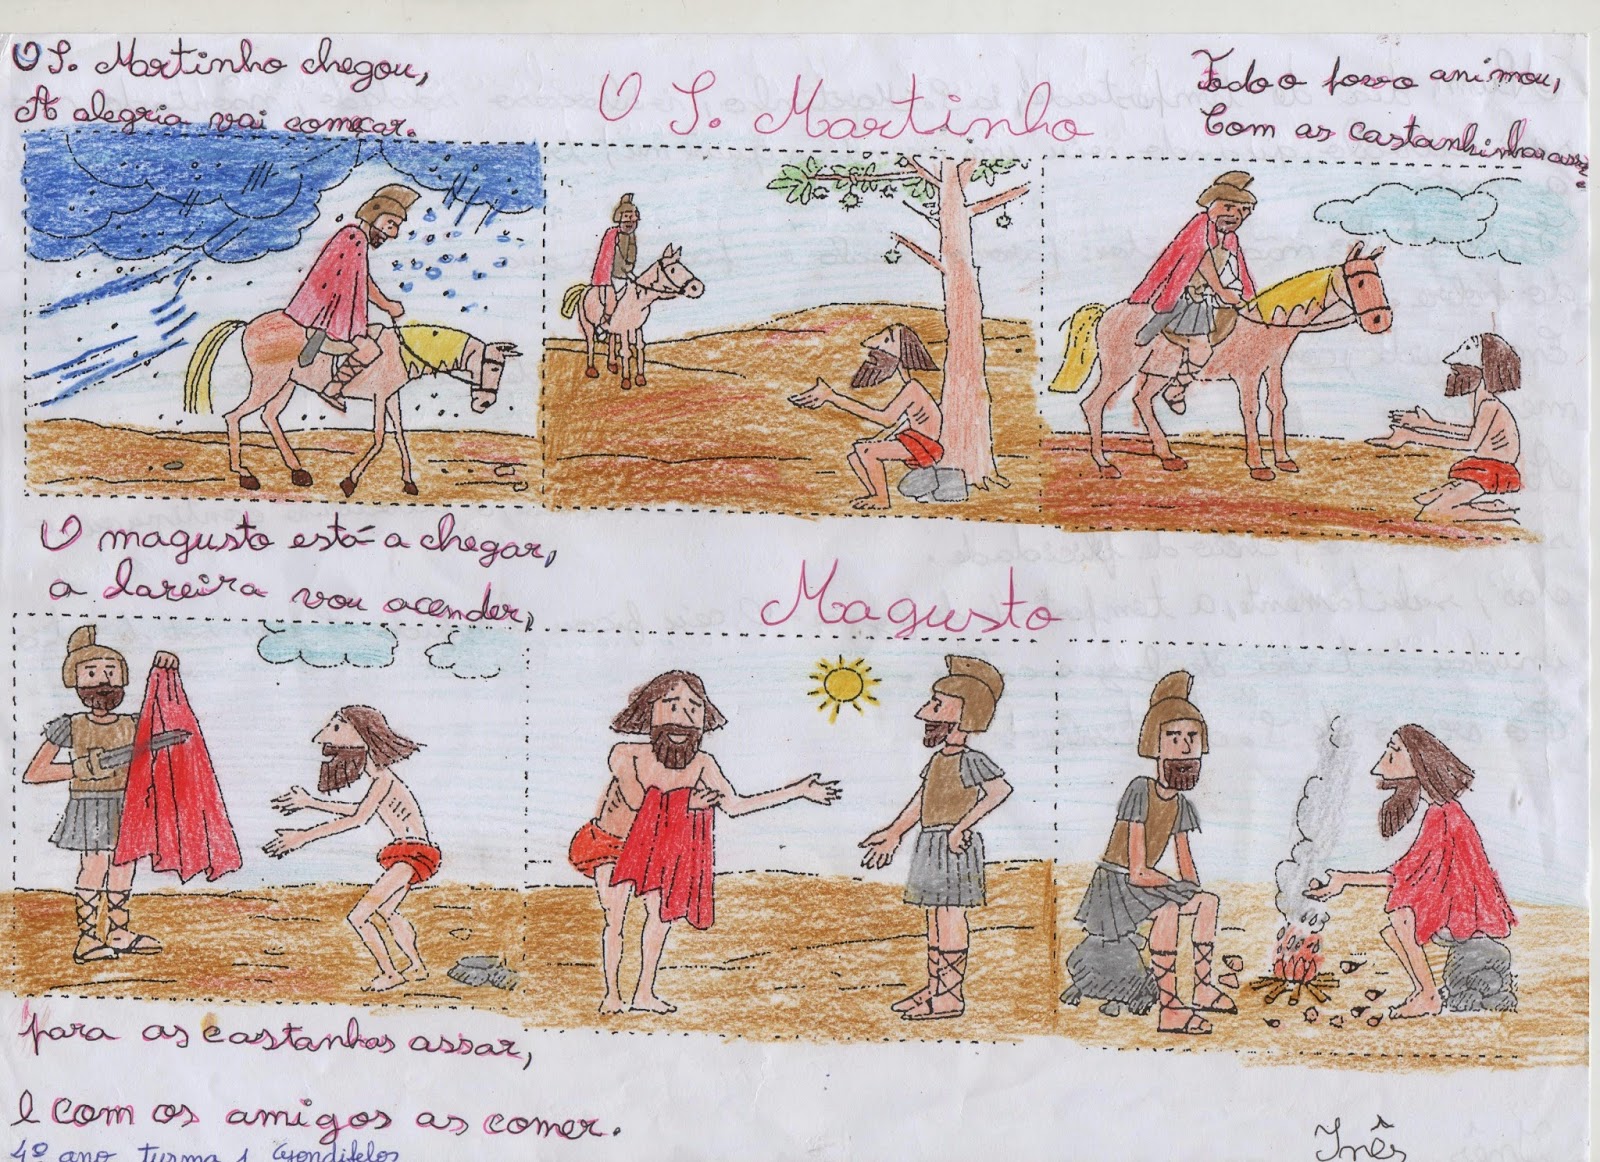 O S. Martinho chegou,
A alegria vai começar.
O S. Martinho
Todo o povo animou,
Com as castanhinhas assar.
O magusto está a chegar,
a lareira vou acender,
Magusto
para as castanhas assar,
e com os amigos as comer.
4º ano turma 1 Gondifelos
Inês